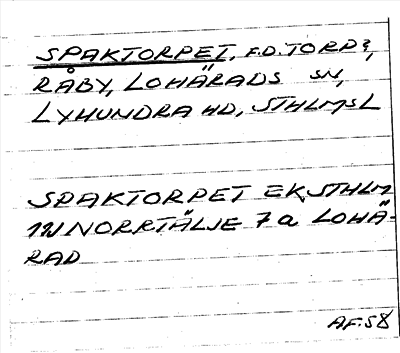 SPAKTORPET, F.D. TORP?,
RÅBY, LOHÄRADS SN,
LYHUNDRA HD, STHLMSL
SPAKTORPET EK. STHLM
12I NORRTÄLJE 7a LOHÄ-
RAD
AF.58